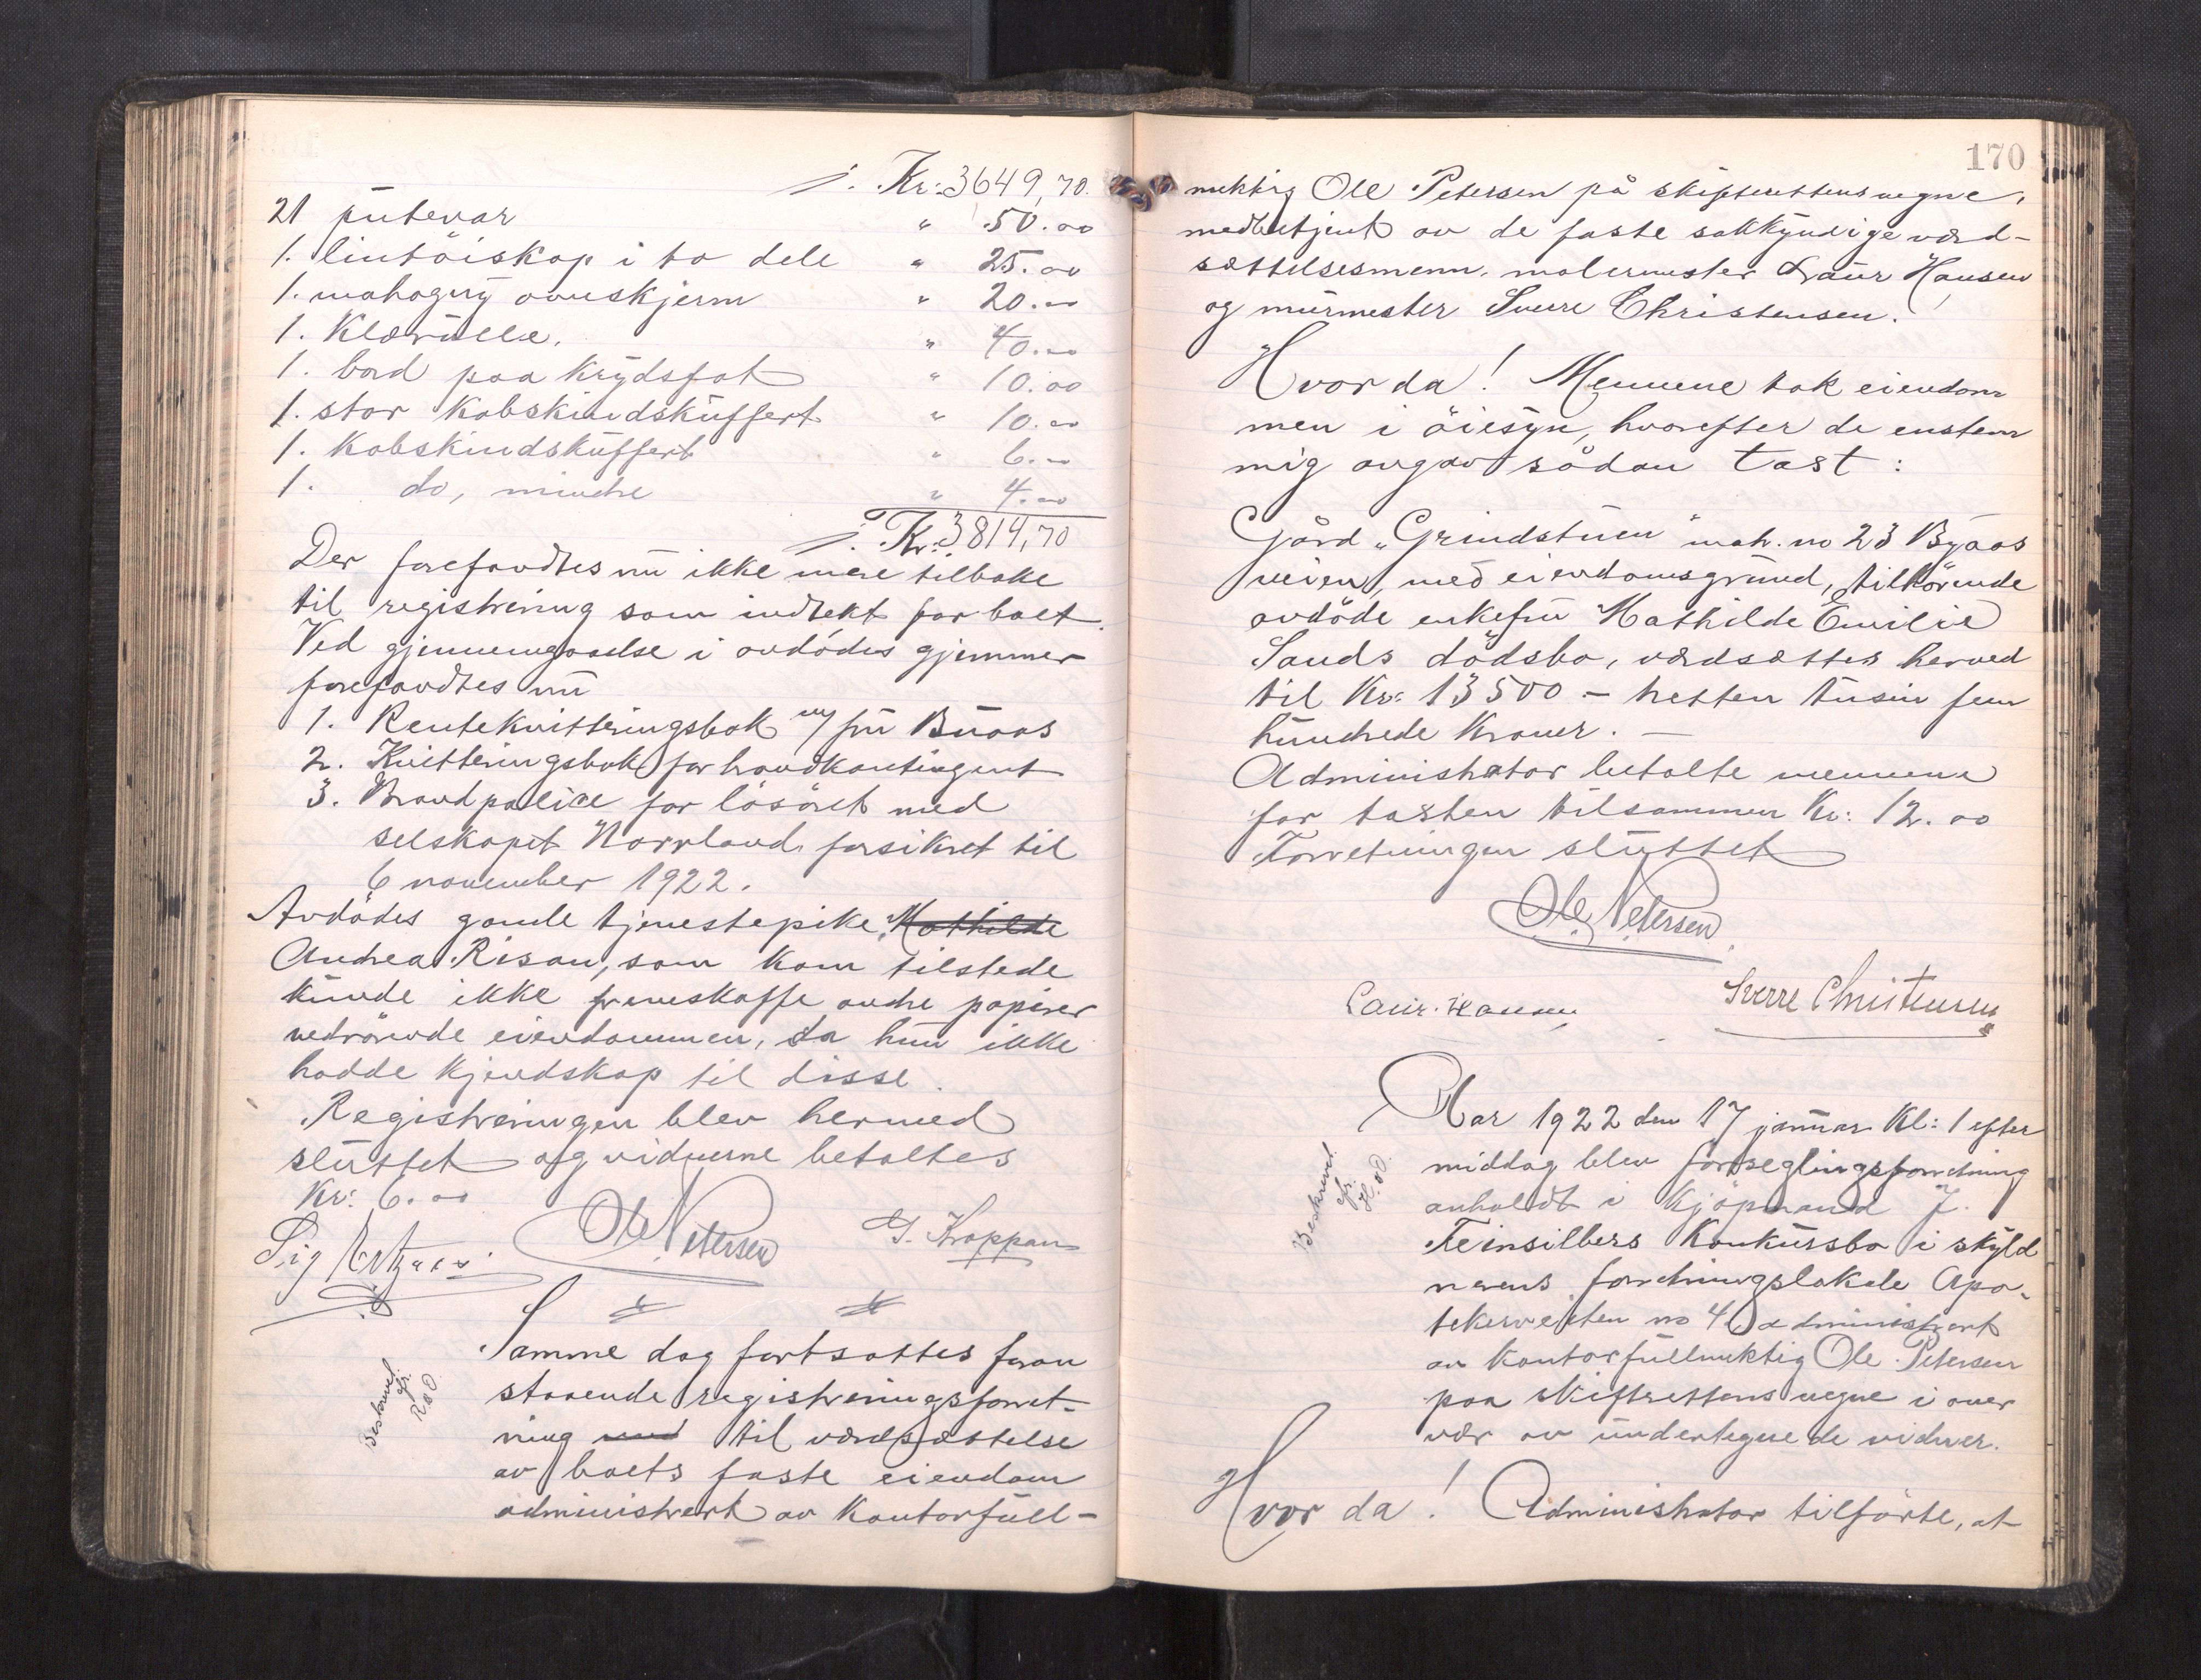 /. Kr: 3649,70.
21 putevar " 50.00
1. lintöiskap i to dele " 25.00
1. mahogny ovnskjerm " 20.00
1. Klærulle. " 40.00
1. bord paa Krydsfot " 10.00
1. stor Kobskindskuffert " 10.00
1. Kobskindskuffert " 6.00
1. do, mindre " 4.00
/. Kr: 3814,70
Der forefandtes nu ikke mere tilbake
til registrering som indtekt for boet.
Ved gjennemgaaelse i avdödes gjemmer
forefandtes nu
1. Rentekvitteringsbok m/ fru Buaas
2. Kvitteringsbok for brandkontingent
3. Brandpolice for lösöret med
selskapet Norrland forsikret til
6 november 1922.
Avdödes gamle tjenestepike Mathilde
Andrea Risan, som kom tilstede
kunde ikke fremskaffe andre papirer
vedrörende eiendommen, da hun ikke
hadde Kjendskap til disse.
Registreringen blev hermed
sluttet og vidnerne betaltes
Kr: 6.00
Sig Ole Petersen G. Kroppan
Samme dag fortsattes foran
staaende registreringsforret-
ning med til værdsættelse
av boets faste eiendom
administrert av Kontorfull-
Beskrevet
170
mektig Ole Petersen på skifterettens vegne,
medbetjent av de faste sakkyndige værd-
sættelsesmenn, malermester Laur Hansen
og murmester Sverre Christensen.
Hvor da! Mennene tok eiendom
men i öiesyn, hvorefter de enstem
mig avgav sådan tast:
Gård "Grindstuen" mat. no 23 Byaas
veien, med eiendomsgrund, tilhörende
avdöde enkefru Mathilde Emilie
Sands dödsbo, værdsættes herved
til Kr: 13500 - tretten tusin fem
hundrede Kroner. —
Administrator betalte mennene
for tasten tilsammen Kr: 12.00
Forretningen sluttet
Ole Petersen
Laur. Hansen Sverre Christensen
Aar 1922 den 17 januar Kl: 1 efter
middag blev forseglingsforretning
avholdt i Kjöpmand J.
Feinsilbers Konkursbo i skyld
nerens forretningslokale Apo-
tekerveiten no 4 administrert
av Kontorfullmektig Ole Petersen
paa skifterettens vegne i over
vær av undertegnede vidner.
Beskrevet
Hvor da! Administrator tilförte, at